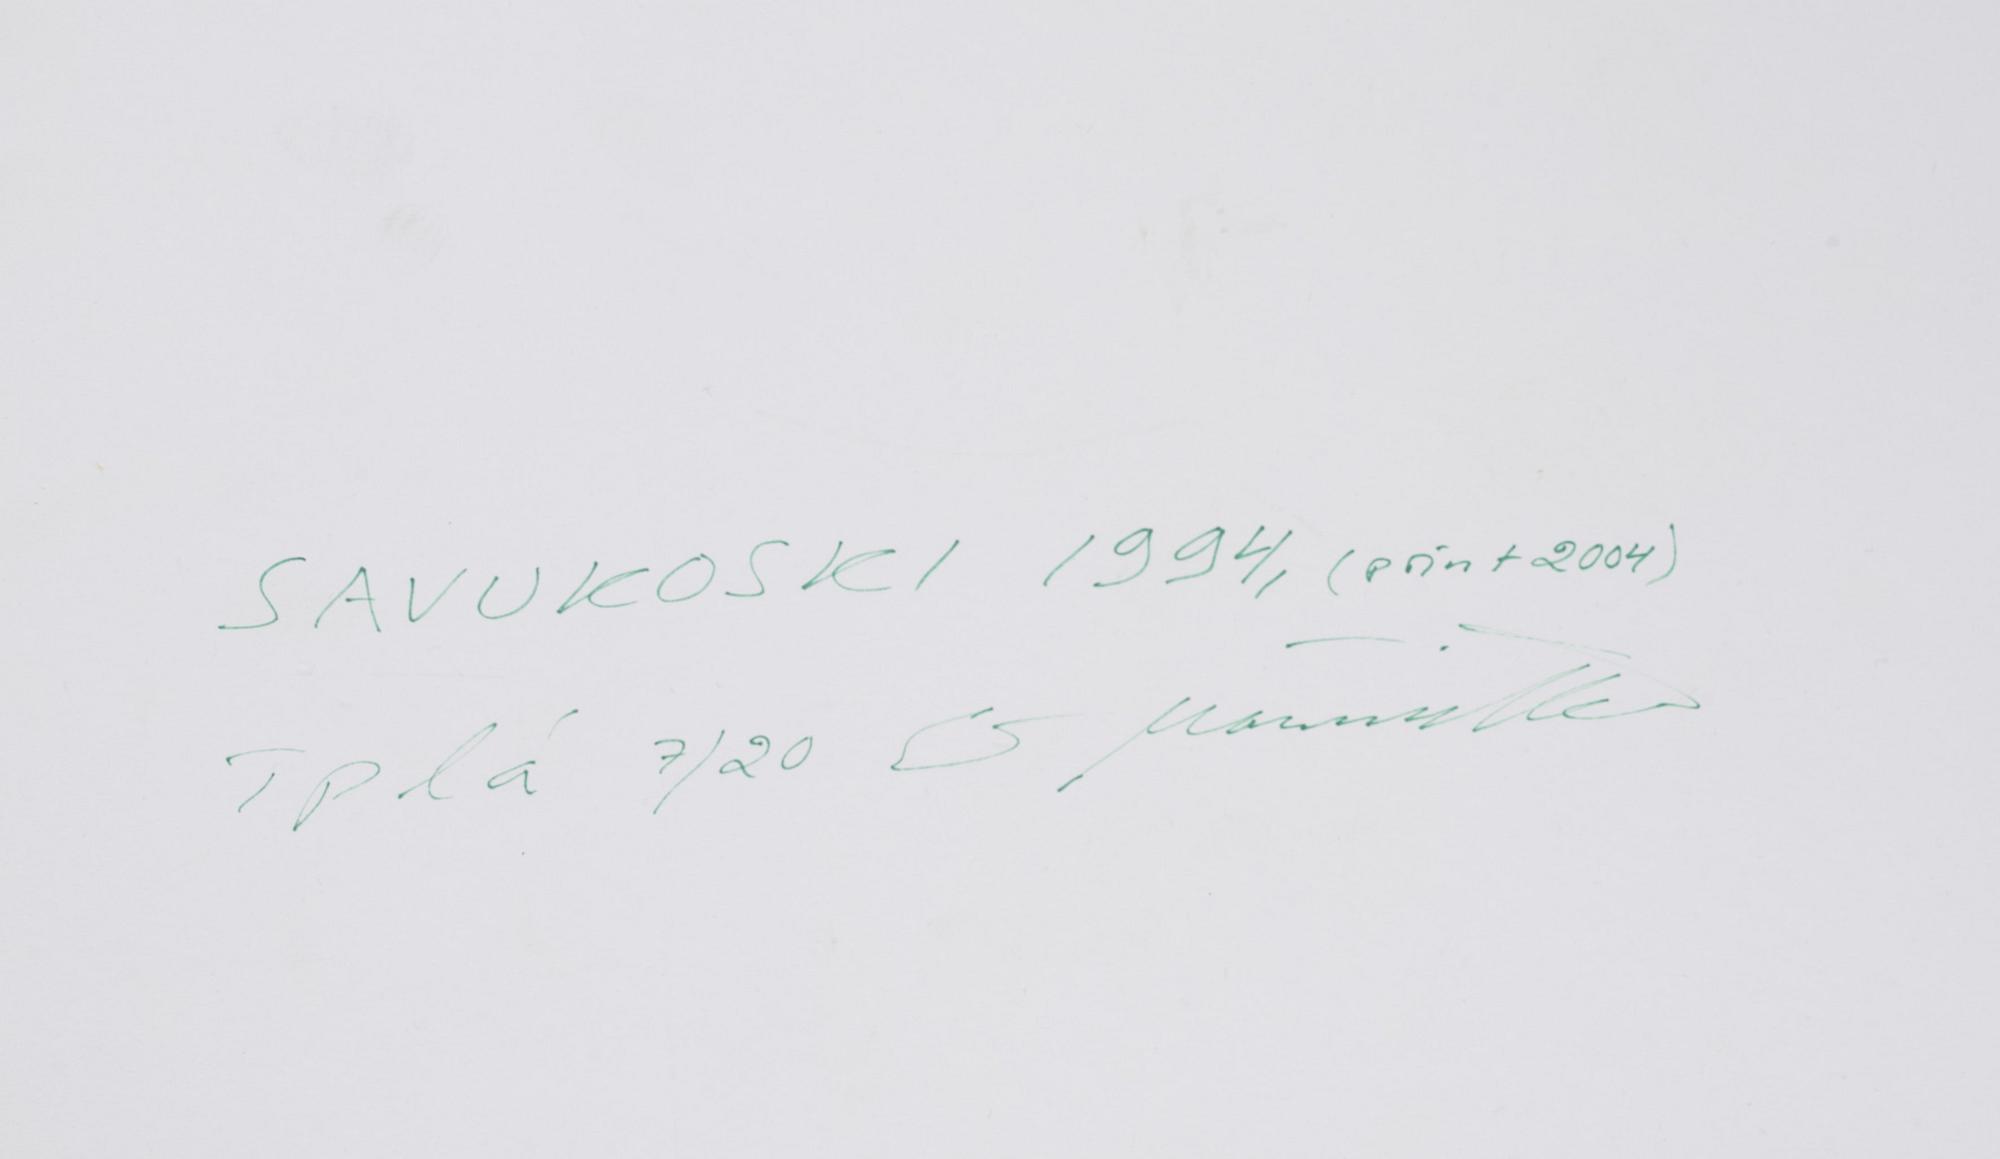 SAVUKOSKI 1994, (print 2004)
Tplá 7/20